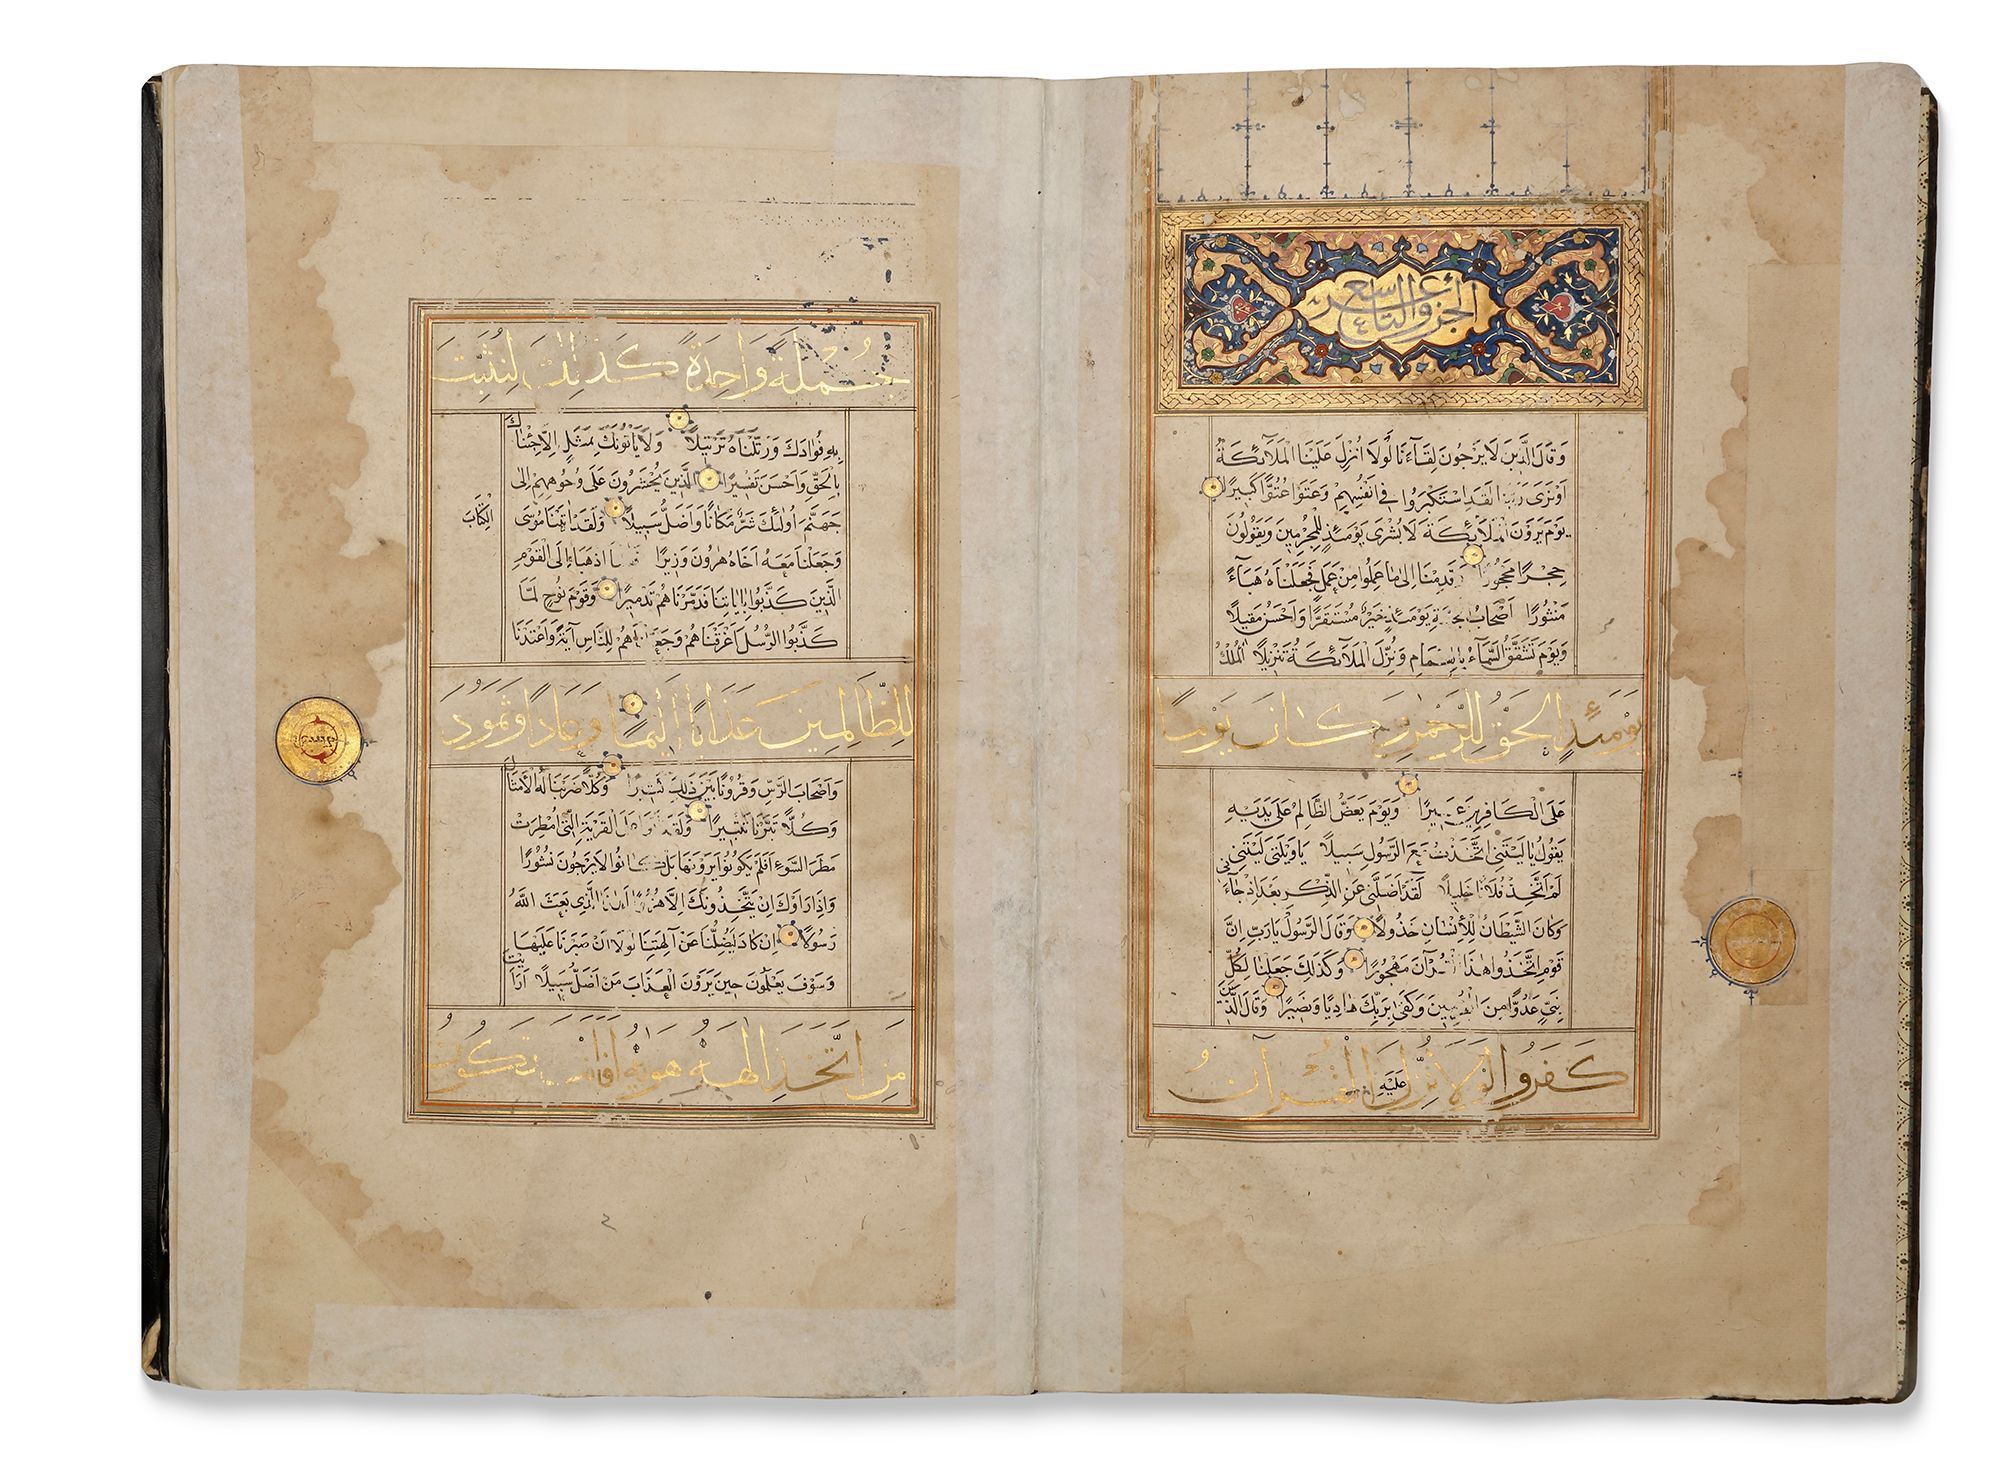 الجزو التاسع عشر
وَقَالَ الَّذِينَ لَا يَرْجُونَ لِقَآءَنَا لَوْلَا اُنْزِلَ عَلَيْنَا الْمَلَآئِكَةُ
اَوْ نَرٰى رَبَّنَا لَقَدِ اسْتَكْبَرُوا فِي اَنْفُسِهِمْ وَعَتَوْا عُتُوًّا كَبِيرًا
يَوْمَ يَرَوْنَ الْمَلَائِكَةَ لَا بُشْرَى يَوْمَئِذٍ لِلْمُجْرِمِينَ وَيَقُولُونَ
حِجْرًا مَحْجُورًا وَقَدِمْنَا اِلٰى مَا عَمِلُوا مِنْ عَمَلٍ فَجَعَلْنَاهُ هَبَآءً
مَنْثُورًا اَصْحَابُ الْجَنَّةِ يَوْمَئِذٍ خَيْرٌ مُسْتَقَرًّا وَاَحْسَنُ مَقِيلًا
وَيَوْمَ تَشَقَّقُ السَّمَآءُ بِالْغَمَامِ وَنُزِّلَ الْمَلَآئِكَةُ تَنْزِيلًا الْمُلْكُ
يَوْمَئِذٍ الْحَقُّ لِلرَّحْمٰنِ وَكَانَ يَوْمًا
عَلَى الْكَافِرِينَ عَسِيرًا وَيَوْمَ يَعَضُّ الظَّالِمُ عَلَى يَدَيْهِ
يَقُولُ يَا لَيْتَنِي اتَّخَذْتُ مَعَ الرَّسُولِ سَبِيلًا يَا وَيْلَتٰى لَيْتَنِي
لَمْ اَتَّخِذْ فُلَانًا خَلِيلًا لَقَدْ اَضَلَّنِي عَنِ الذِّكْرِ بَعْدَ اِذْ جَاءَنِي
وَكَانَ الشَّيْطَانُ لِلْاِنْسَانِ خَذُولًا وَقَالَ الرَّسُولُ يَا رَبِّ اِنَّ
قَوْمِ اتَّخَذُوا هٰذَا الْقُرْآنَ مَهْجُورًا وَكَذٰلِكَ جَعَلْنَا لِكُلِّ
نَبِيٍّ عَدُوًّا مِنَ الْمُجْرِمِينَ وَكَفٰى بِرَبِّكَ هَادِيًا وَنَصِيرًا وَقَالَ الَّذِينَ
كَفَرُوا لَوْلَا نُزِّلَ عَلَيْهِ الْقُرْآنُ
جُمْلَةً وَاحِدَةً كَذٰلِكَ لِنُثَبِّتَ
بِهِ فُؤَادَكَ وَرَتَّلْنَاهُ تَرْتِيلًا وَلَا يَأْتُونَكَ بِمَثَلٍ اِلَّا جِئْنَاكَ
بِالْحَقِّ وَاَحْسَنَ تَفْسِيرًا الَّذِينَ يُحْشَرُونَ عَلَى وُجُوهِهِمْ اِلَى
جَهَنَّمَ اُولٰئِكَ شَرٌّ مَكَانًا وَاَضَلُّ سَبِيلًا وَلَقَدْ آتَيْنَا مُوسَى
الْكِتَابَ
وَجَعَلْنَا مَعَهُ اَخَاهُ هٰرُونَ وَزِيرًا فَقُلْنَا اذْهَبَا اِلَى الْقَوْمِ
الَّذِينَ كَذَّبُوا بِاٰيَاتِنَا فَدَمَّرْنَاهُمْ تَدْمِيرًا وَقَوْمَ نُوحٍ لَمَّا
كَذَّبُوا الرُّسُلَ اَغْرَقْنَاهُمْ وَجَعَلْنَاهُمْ لِلنَّاسِ آيَةً وَاَعْتَدْنَا
لِلظَّالِمِينَ عَذَابًا اَلِيمًا وَعَادًا وَثَمُودَ
وَاَصْحَابَ الرَّسِّ وَقُرُونًا بَيْنَ ذٰلِكَ كَثِيرًا وَكُلًّا ضَرَبْنَا لَهُ الْاَمْثَالَ
وَكُلًّا تَبَّرْنَا تَتْبِيرًا وَلَقَدْ اَتَوْا عَلَى الْقَرْيَةِ الَّتِي اُمْطِرَتْ
مَطَرَ السَّوْءِ اَفَلَمْ يَكُونُوا يَرَوْنَهَا بَلْ كَانُوا لَا يَرْجُونَ نُشُورًا
وَاِذَا رَاَوْكَ اِنْ يَتَّخِذُونَكَ اِلَّا هُزُوًا اَهٰذَا الَّذِي بَعَثَ اللّٰهُ
رَسُولًا اِنْ كَادَ لَيُضِلُّنَا عَنْ آلِهَتِنَا لَوْلَا اَنْ صَبَرْنَا عَلَيْهَا
وَسَوْفَ يَعْلَمُونَ حِينَ يَرَوْنَ الْعَذَابَ مَنْ اَضَلُّ سَبِيلًا اَرَاَيْتَ
مَنِ اتَّخَذَ اِلٰهَهُ هَوٰيهُ اَفَاَنْتَ تَكُونُ